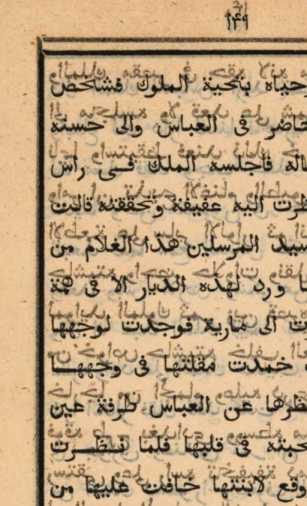 ١٤٩
وحياه بتحية الملوك فشخص
حاضر فى العباس والى حسنه
فاجلسه الملك فى راس
نظرت اليه عقيقة وتحققته قالت
سيد المرسلين هذا الغلام من
ورد لهذه الديار الا فى
الى مارية فوجدت لوجهها
خمدت مقلتها فى وجهها
نظرها عن العباس طرفة عين
محبته فى قلبها فلما نظرت
وقع لابنتها خافت عليها من